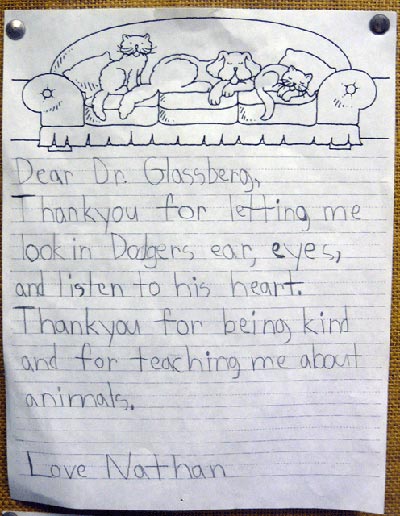 Dear Dr. Glassberg,
Thankyou for letting me
look in Dodgers ear, eyes,
and listen to his heart.
Thankyou for being kind
and for teaching me about
animals.
Love Nathan